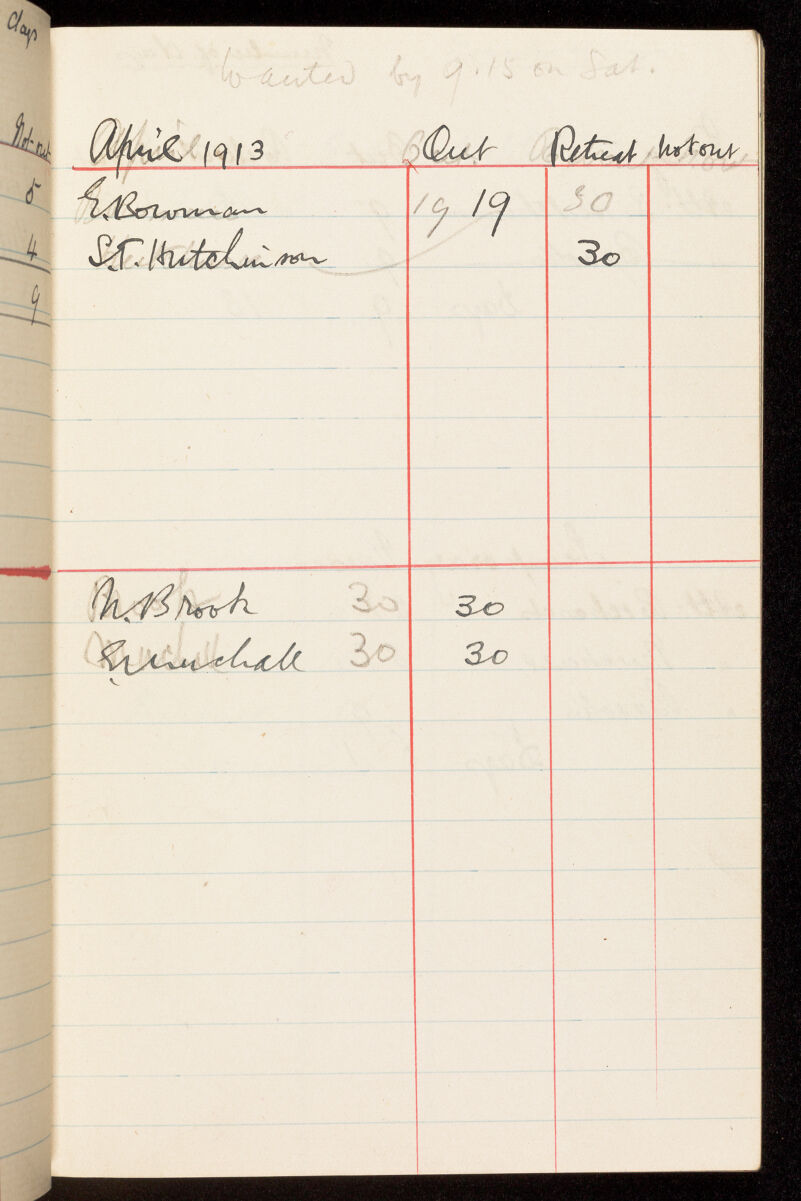 days
Not out
5
4
9
Wanted by 9.15 on Sat.
April 1913 Out Retreat Not out
E. Bowman 19 19 30
S.T. Hutchinson 30
M. Brook 30 30
30 30